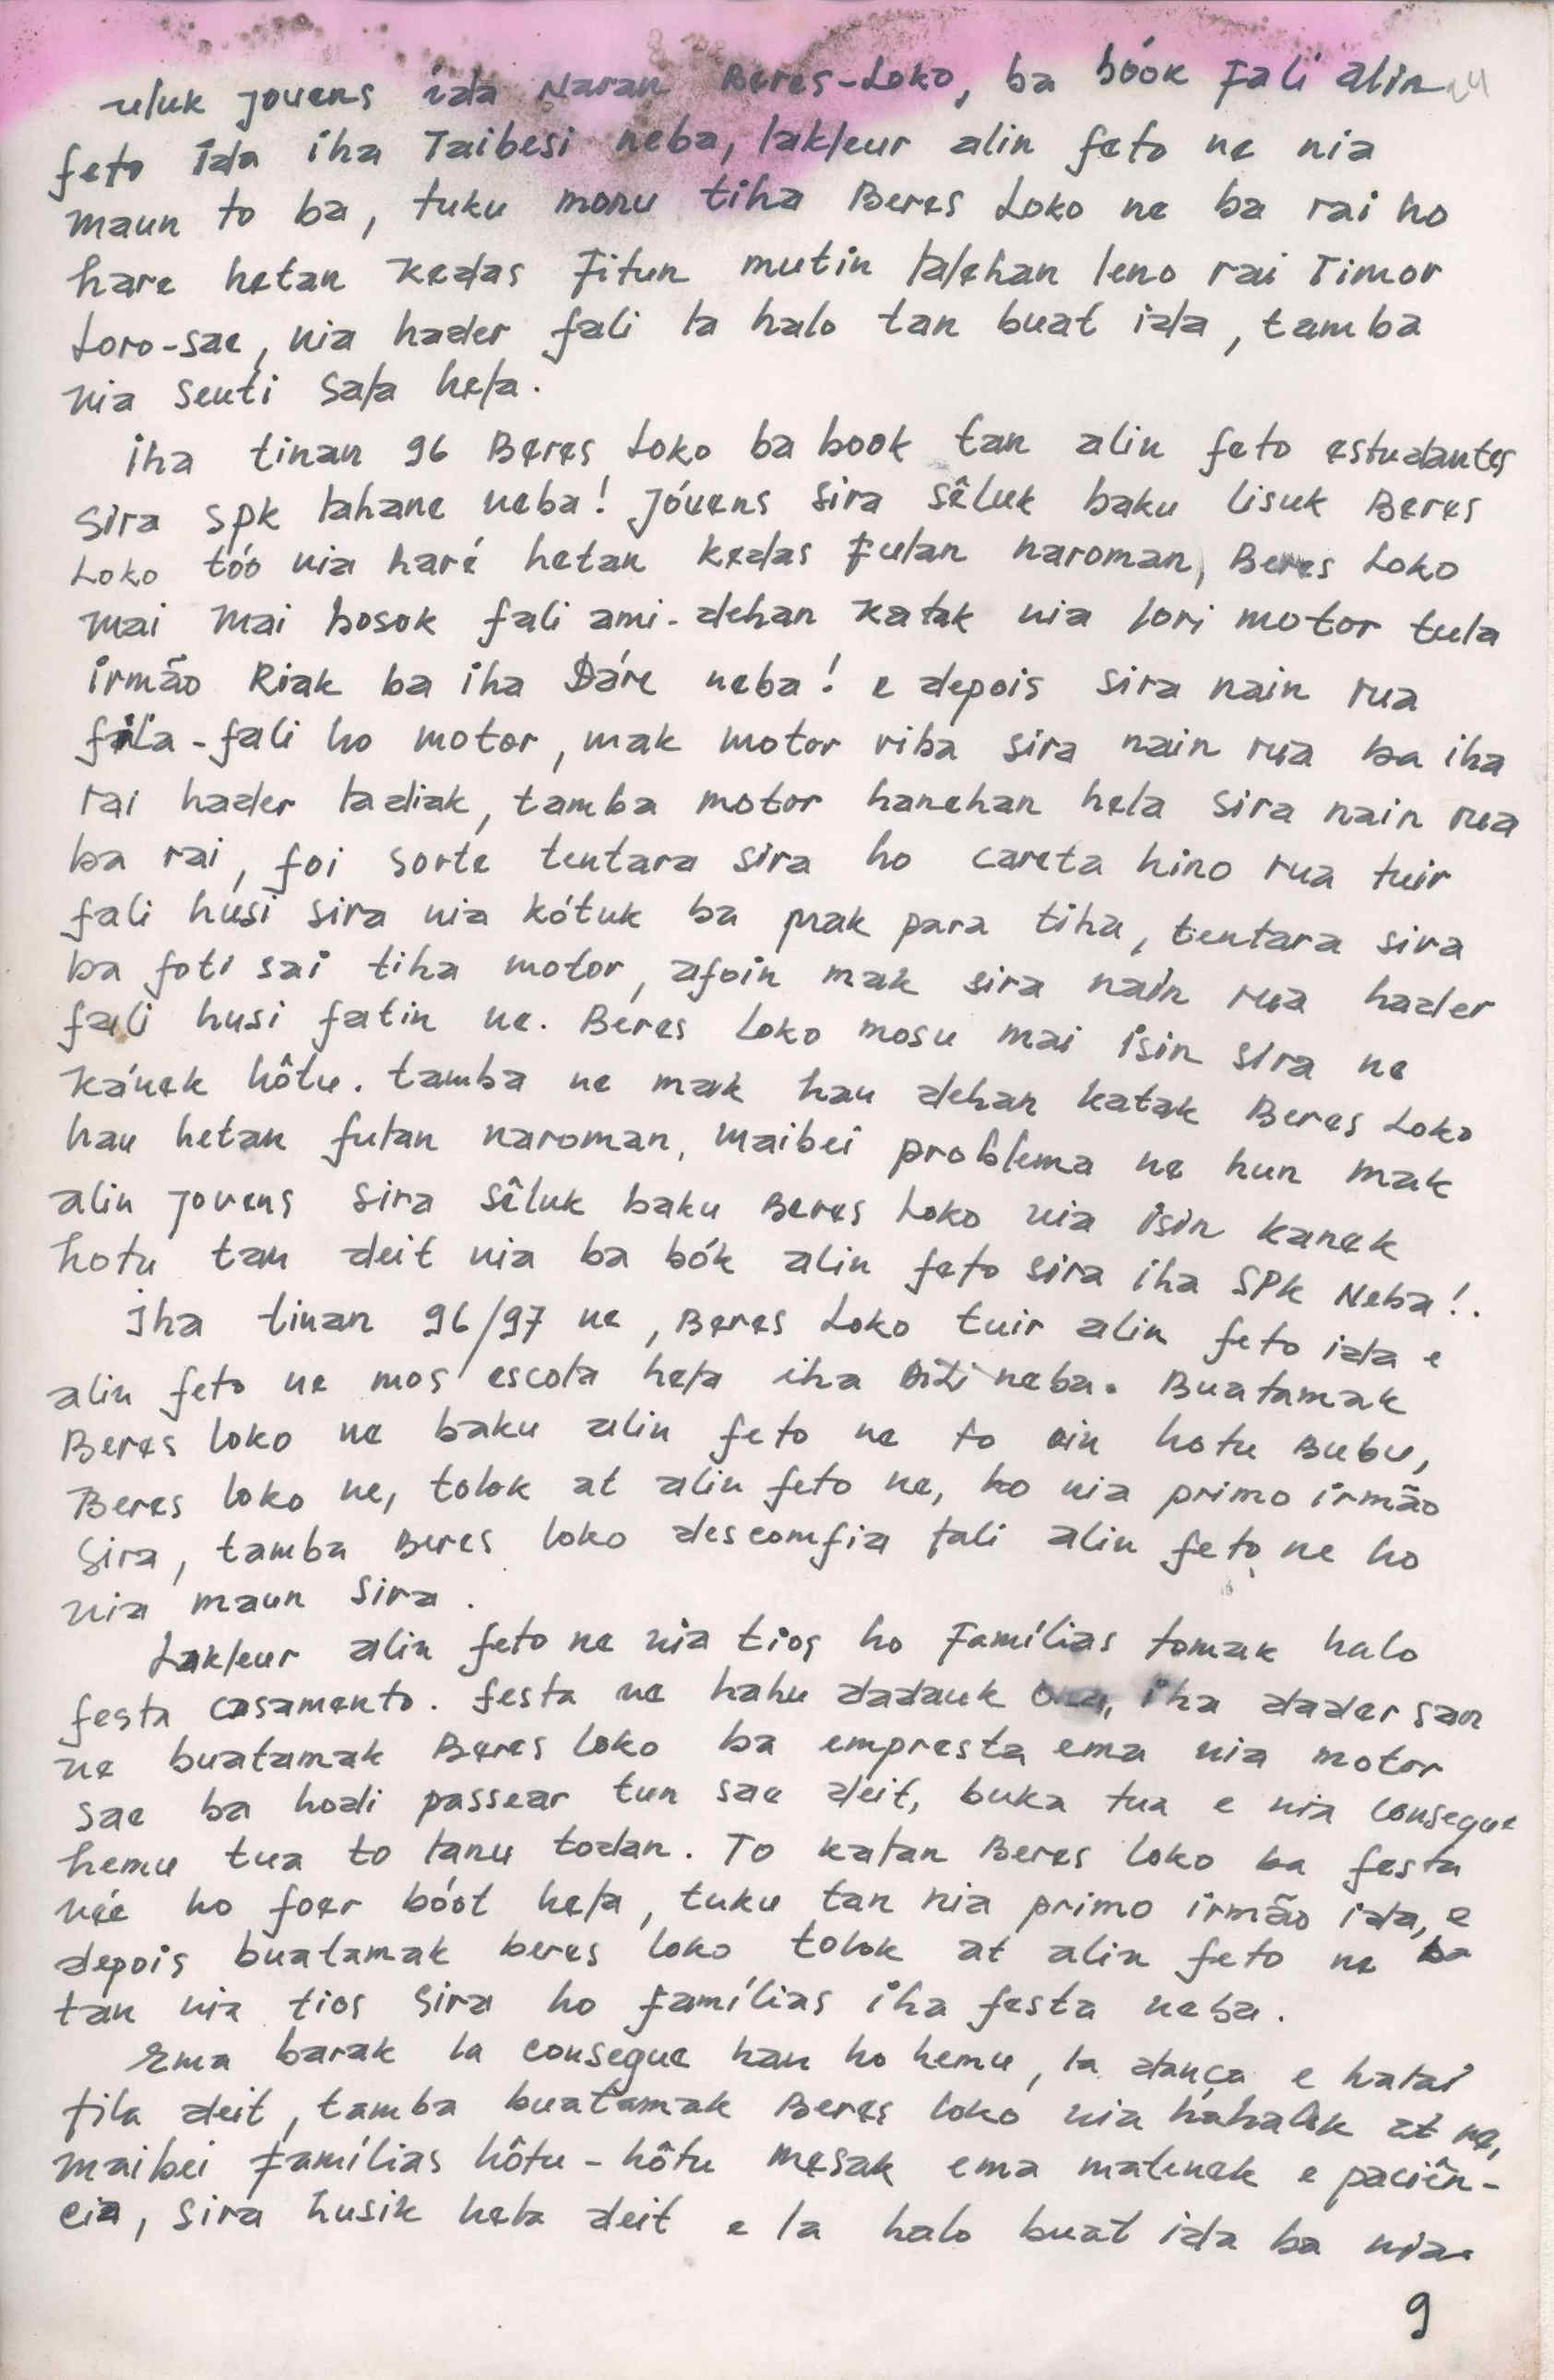 uluk jovens ida Naran Beres-Loko, ba bóok Fali alin
feto ida iha Taibesi neba, lakleur alin feto ne nia
maun to ba, tuku monu tiha Beres Loko ne ba rai ho
hare hetan Kedas Fitun mutin lalehan leno rai Timor
Loro-sae, nia hader fali la halo tan buat ida, tamba
nia senti sala hela.
iha tinan 96 Beres Loko ba book tan alin feto estudantes
sira SPK lahane neba! Jóvens sira sêluk baku lisuk Beres
Loko tóo nia haré hetan kedas Fulan naroman, Beres Loko
mai mai bosok fali ami-dehan Katak nia lori motor tula
irmão Riak ba iha Dáre neba! e depois sira nain rua
fila-fali ho motor, mak motor riba sira nain rua ba iha
rai hader ladiak, tamba motor hanehan hela sira nain rua
ba rai, foi sorte tentara sira ho careta hino rua tuir
fali husi sira nia kótuk ba mak para tiha, tentara sira
ba foti sai tiha motor, afoin mak sira nain rua hader
fali husi fatin ne. Beres Loko mosu mai isin sira ne
Kánek hôtu. tamba ne mak hau dehan katak Beres Loko
hau hetan fulan naroman, maibei problema ne hun mak
alin jovens sira sêluk baku Beres Loko nia isin kanek
hotu tan deit nia ba bók alin feto sira iha SPK Neba!.
Iha tinan 96/97 ne, Beres Loko tuir alin feto ida e
alin feto ne mos escola hela iha neba. Buatamak
Beres loko ne baku alin feto ne to oin hotu Bubu,
Beres loko ne, tolok at alin feto ne, ho nia primo irmão
Sira, tamba Beres loko descomfia fali alin feto ne ho
nia maun sira.
Lakleur alin feto ne nia tios ho Famílias tomak halo
festa casamento. festa ne hahu dadauk ona, iha dader san
ne buatamak Beres loko ba empresta ema nia motor
sae ba hodi passear tun sae deit, buka tua e nia consegue
hemu tua to lanu todan. To kalan Beres loko ba festa
née ho foer bóot hela, tuku tan nia primo irmão ida, e
depois buatamak beres loko tolok at alin feto ne ba
tan nia tios sira ho famílias iha festa neba.
Ema barak la consegue han ho hemu, la dança e halai
fila deit, tamba buatamak Beres loko nia hahalok at ne,
maibei Famílias hôtu-hôtu mesak ema matenek e paciên-
cia, sira husik hela deit e la halo buat ida ba nia.
9